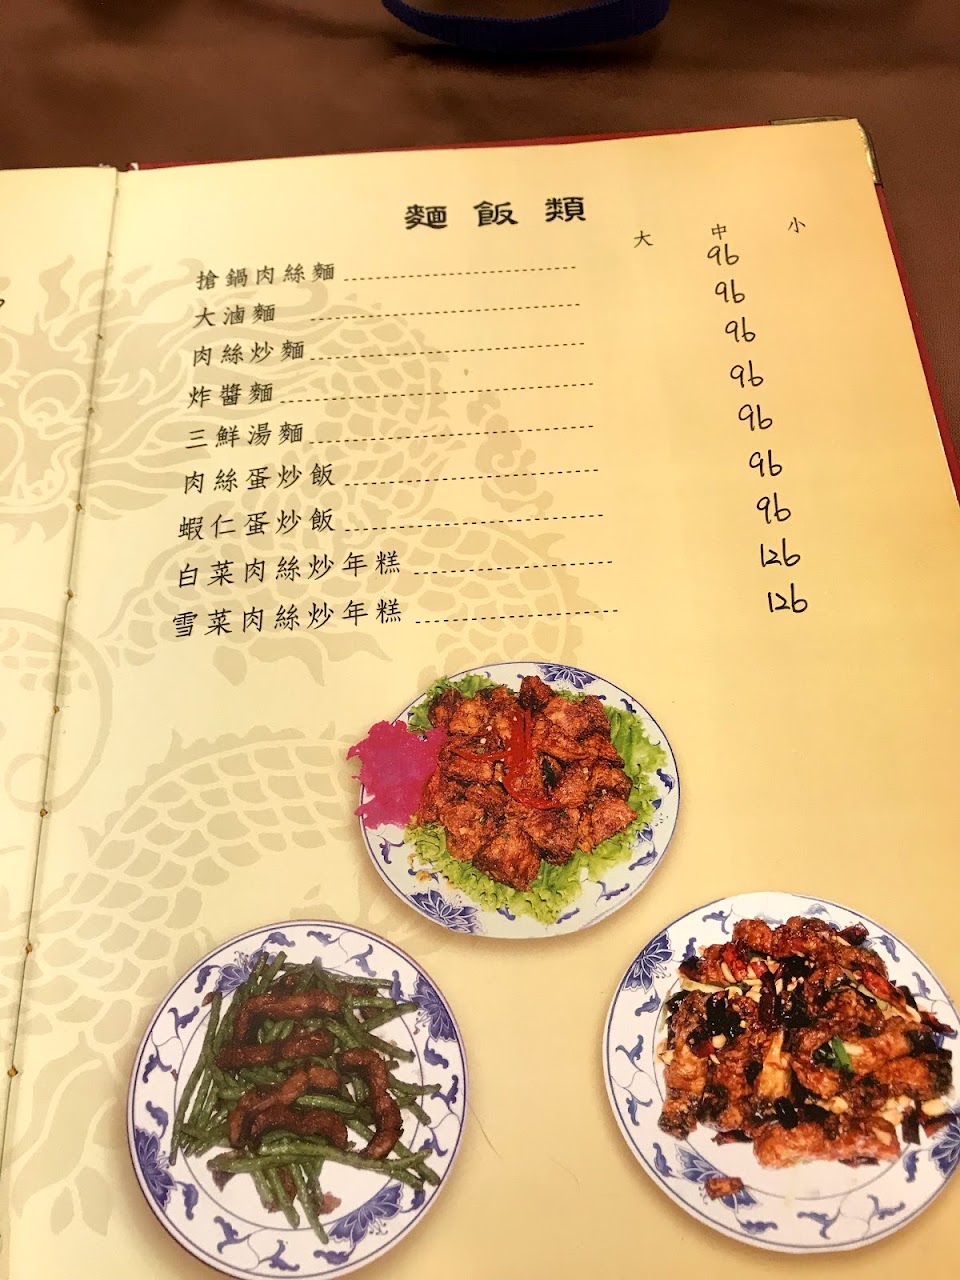 麵飯類
大 中 小
搶鍋肉絲麵 96
大滷麵 96
肉絲炒麵 96
炸醬麵 96
三鮮湯麵 96
肉絲蛋炒飯 96
蝦仁蛋炒飯 96
白菜肉絲炒年糕 126
雪菜肉絲炒年糕 126